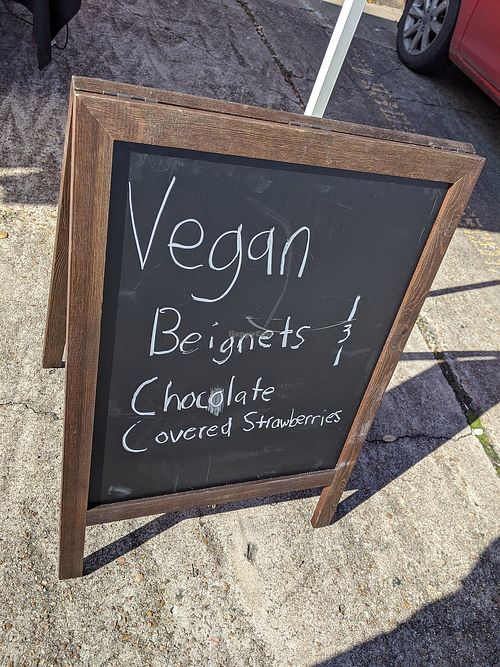 Vegan
Beignets
Chocolate
Covered Strawberries